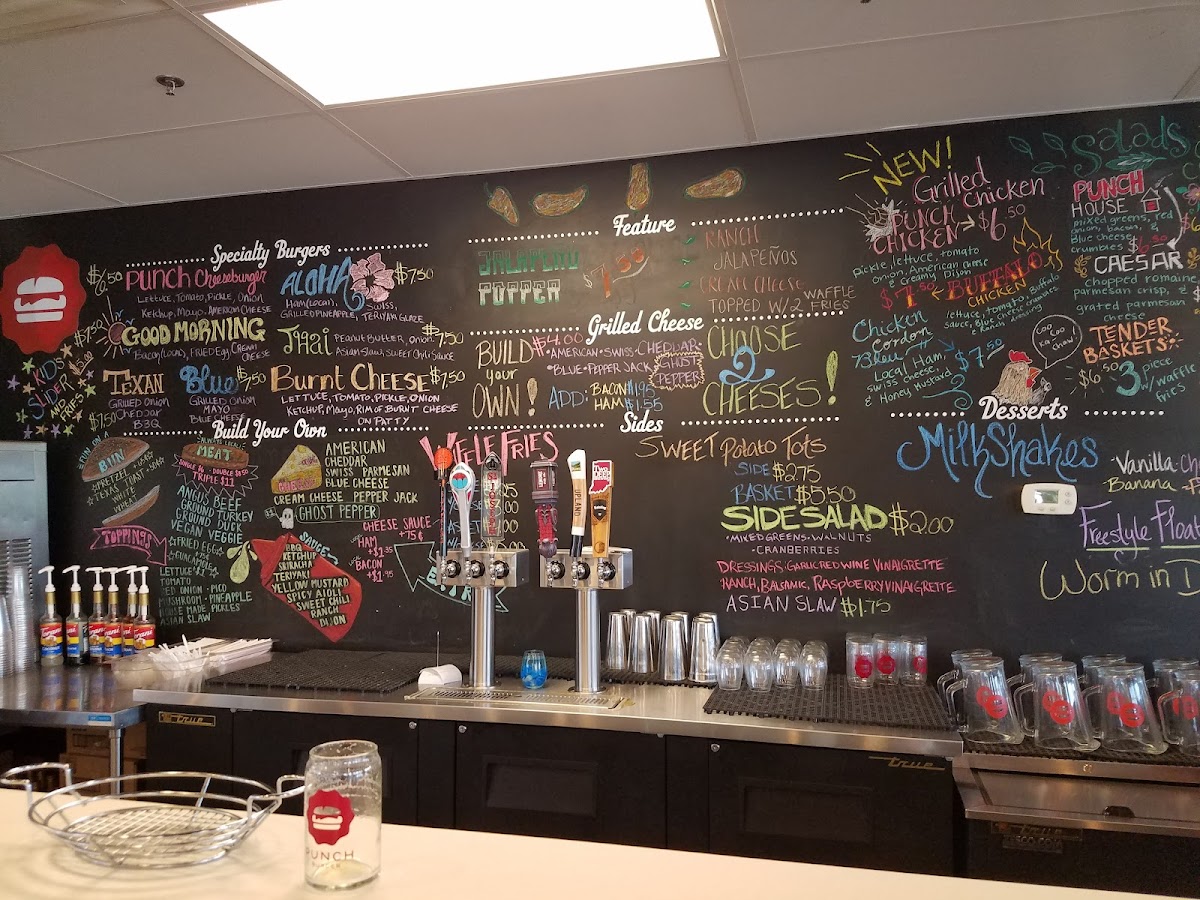 Specialty Burgers
$6.50 PUNCH Cheeseburger
LETTUCE, TOMATO, PICKLE, ONION
KETCHUP, MAYO, AMERICAN CHEESE
ALOHA $7.50
HAM (LOCAL), SWISS,
GRILLED PINEAPPLE, TERIYAKI GLAZE
$7.50 GOOD MORNING
BACON (LOCAL), FRIED EGG, CREAM CHEESE
THAI PEANUT BUTTER, ONION, $7.50
ASIAN SLAW, SWEET CHILI SAUCE
KIDS SLIDER
AND FRIES
TEXAN
GRILLED ONION
CHEDDAR
$7.50 BBQ
Blue $7.50
GRILLED ONION
MAYO
BLUE CHEESE
Burnt CHEESE $7.50
LETTUCE, TOMATO, PICKLE, ONION
KETCHUP, MAYO, RIM OF BURNT CHEESE
ON PATTY
Build Your Own
BUN
PRETZEL
TEXAS TOAST
WHITE
WHEAT
TOPPINGS
FRIED EGG
GUACAMOLE
LETTUCE
TOMATO
RED ONION - PICO
MUSHROOM - PINEAPPLE
HOUSE MADE PICKLES
ASIAN SLAW
MEAT
SINGLE $6 - DOUBLE $8.50
TRIPLE $11
ANGUS BEEF
GROUND TURKEY
GROUND DUCK
VEGAN VEGGIE
CHEESE
AMERICAN
CHEDDAR
SWISS PARMESAN
BLUE CHEESE
CREAM CHEESE PEPPER JACK
GHOST PEPPER
CHEESE SAUCE
+75¢
HAM
+$1.35
BACON
+$1.95
SAUCE
BBQ
KETCHUP
SRIRACHA
TERIYAKI
YELLOW MUSTARD
SPICY AIOLI
SWEET CHILI
RANCH
DIJON
Feature
JALAPEÑO
POPPER
RANCH
JALAPEÑOS
CREAM CHEESE
TOPPED W/2 WAFFLE
FRIES
Grilled Cheese
BUILD
your
OWN!
$4.00
AMERICAN - SWISS - CHEDDAR
BLUE - PEPPER JACK
GHOST
PEPPER
ADD: BACON $1.95
HAM $1.35
CHOOSE
2
CHEESES!
Sides
FRIES
SWEET POTATO TOTS
SIDE $2.75
BASKET $5.50
SIDE SALAD $2.00
MIXED GREENS - WALNUTS
- CRANBERRIES
DRESSINGS: GARLIC RED WINE VINAIGRETTE
RANCH, BALSAMIC, RASPBERRY VINAIGRETTE
ASIAN SLAW $1.75
UPLAND
NEW!
Grilled
Chicken
PUNCH
CHICKEN $6.50
pickle, lettuce, tomato
onion, American cheese
& creamy Dijon
$7.50 BUFFALO
CHICKEN
lettuce, tomato, Buffalo
Sauce, Blue cheese crumbles
& Ranch dressing
Chicken
Cordon
Bleu $7.50
Local Ham
Swiss cheese,
& Honey Mustard
Salads
PUNCH
HOUSE
mixed greens, red
onion, bacon, &
Blue cheese
crumbles $6.50
CAESAR
chopped romaine
parmesan crisp, &
grated parmesan
cheese
Coo
Coo
Kachaw!
TENDER
BASKETS
$6.50 3 piece
w/ waffle
fries
Desserts
MilkShakes
Vanilla
Banana
Freestyle Float
Worm in D
true
true
PUNCH
BURGER